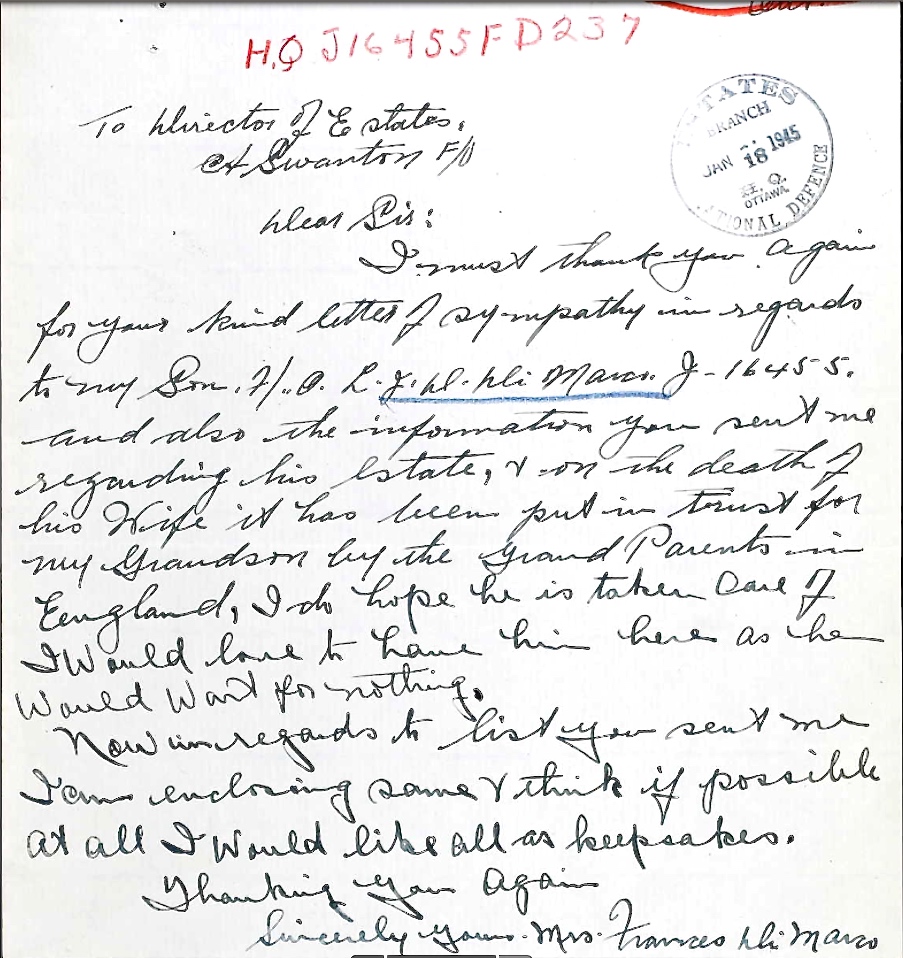 H.Q J16455FD237
ESTATES
BRANCH
JAN 18 1945
H. Q.
OTTAWA.
NATIONAL DEFENCE
To Director of Estates.
Swanton F/O
Dear Sir:
I must thank you again
for your kind letter of sympathy in regards
to my Son. F/.O. L. J. D. Di Marco. J-16455.
and also the information you sent me
regarding his estate, & on the death of
his Wife it has been put in trust for
my Grandson by the Grand Parents in
Eengland, I do hope he is taken Care of
I Would love to have him here as he
Would Want for nothing.
Now in regards to list you sent me
I am enclosing same & think if possible
at all I Would like all as keepsakes.
Thanking you Again
Sincerely yours. Mrs. Frances Di Marco